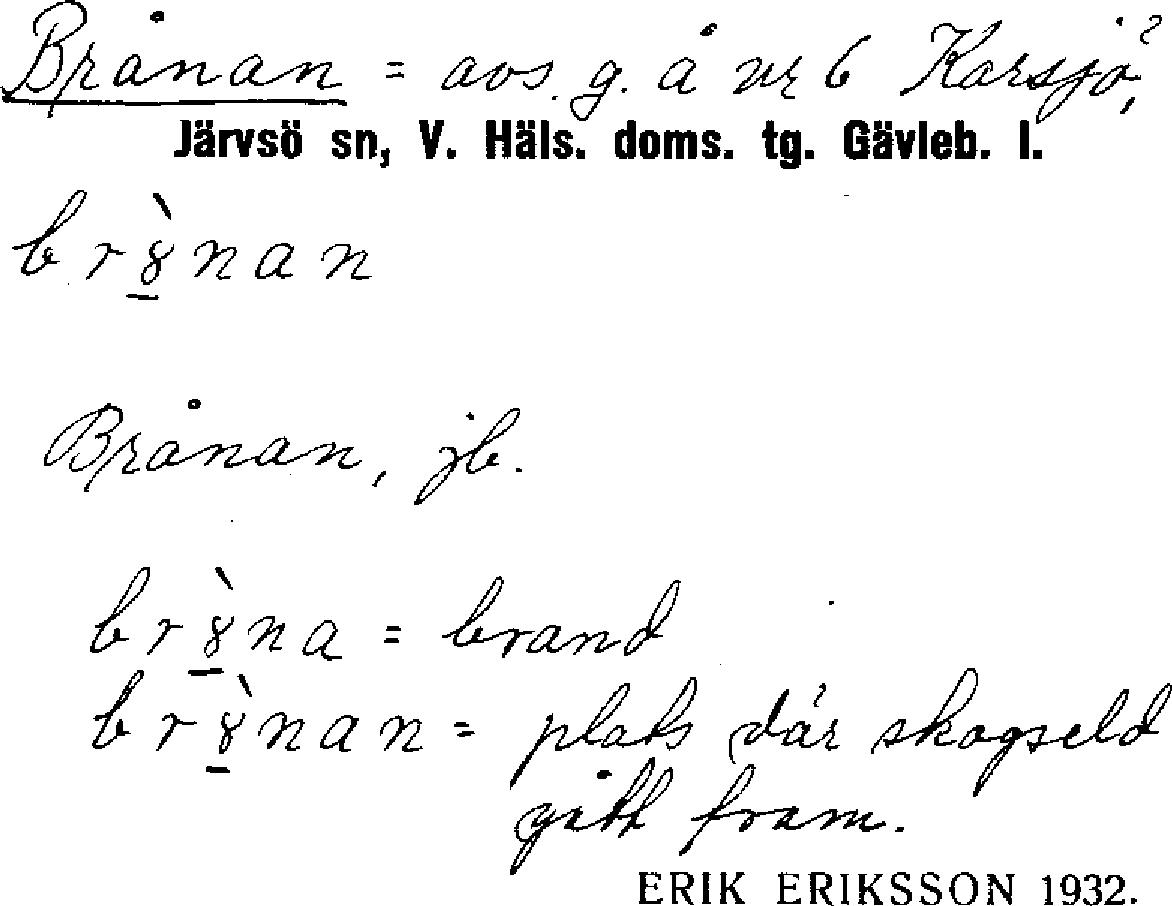 Brånan = avs. g. å nr 6 Karsjö,
Järvsö sn, V. Häls. doms. tg. Gävleb. l.
br8̱̀nan
Brånan, jb.
br8̱̀na = brand
br8̱̀nan = plats där skogseld
gått fram.
ERIK ERIKSSON 1932.